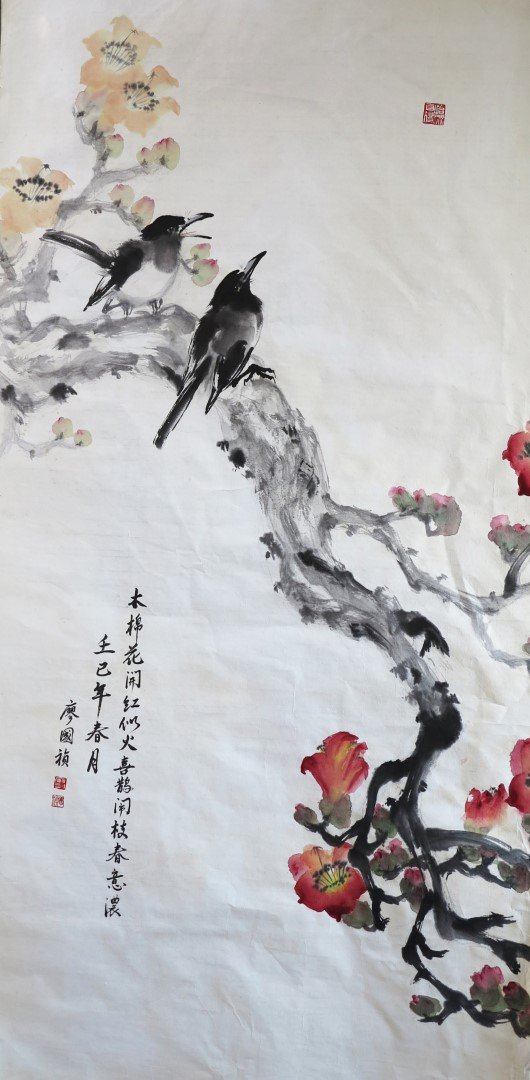 木棉花开红似火喜鹊闹枝春意浓
壬巳年春月
廖國祯